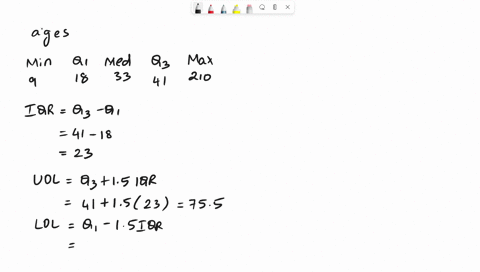 ages
Min Q1 Med Q3 Max
9 18 33 41 210
IQR = Q3 - Q1
= 41 - 18
= 23
UOL = Q3 + 1.5 IQR
= 41 + 1.5 ( 23 ) = 75.5
LOL = Q1 - 1.5 IQR
=